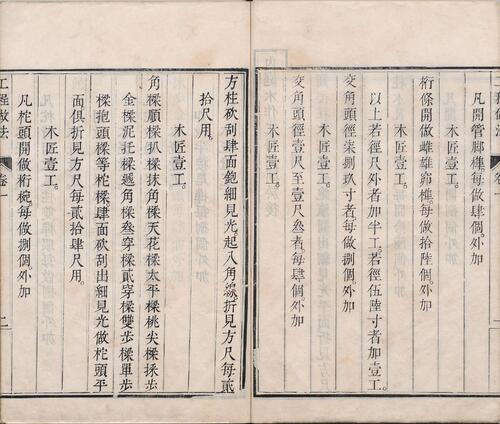 凡開管脚榫每做肆個外加
木匠壹工
桁條開做雌雄𩨂榫每做拾陸個外加
木匠壹工
以上若徑尺外者加半工若徑伍陸寸者加壹工
交角頭徑柒捌玖寸者每做捌個外加
木匠壹工
交角頭徑壹尺至壹尺叁者每肆個外加
木匠壹工
方柱砍刮肆面鉋細見光起八角線折見方尺每貳
拾尺用
木匠壹工
角樑順樑扒樑抹角樑天花樑太平樑桃尖樑採步
金樑泥托樑遞角樑叁穿樑貳穿樑雙步樑單步
樑抱頭樑等柁樑肆面砍刮出細見光做柁頭平
面俱折見方尺每貳拾肆尺用
木匠壹工
凡柁頭開做桁椀每做捌個外加
工程做法 卷一 二